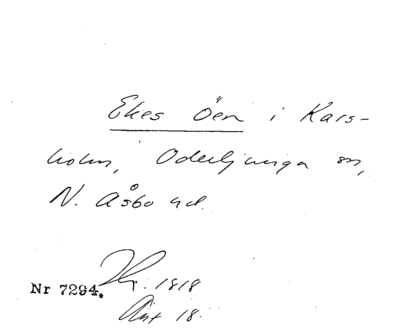 Ekes Öen i Kars-
holm, Oderljunga sn,
N. Åsbo hd.
Nr 7294. 1818
Akt 18.